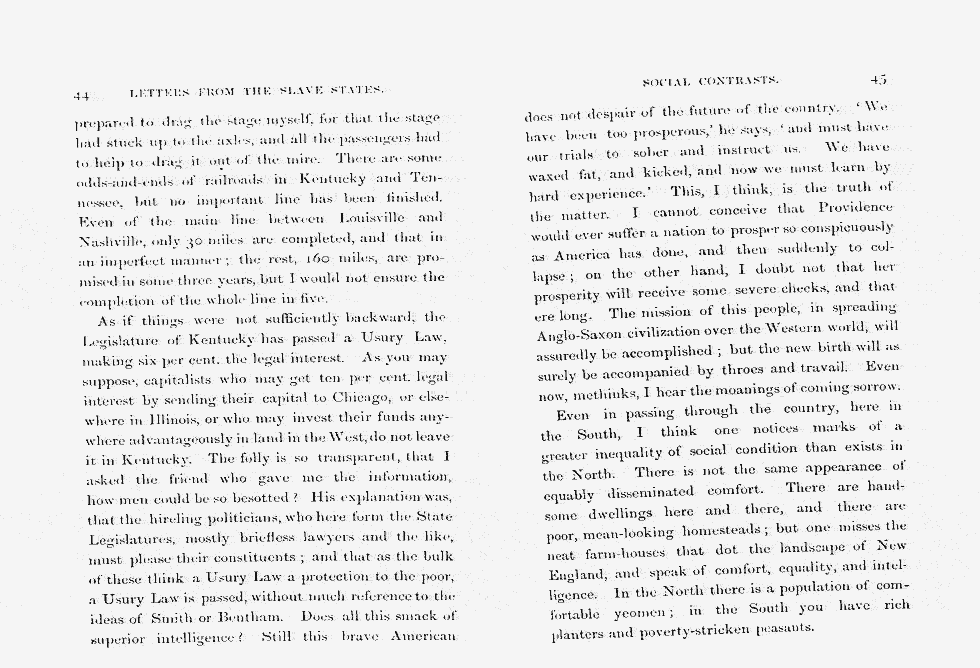 44 LETTERS FROM THE SLAVE STATES.
prepared to drag the stage myself, for that the stage
had stuck up to the axles, and all the passengers had
to help to drag it out of the mire. There are some
odds-and-ends of railroads in Kentucky and Ten-
nessee, but no important line has been finished.
Even of the main line between Louisville and
Nashville, only 30 miles are completed, and that in
an imperfect manner; the rest, 160 miles, are pro-
mised in some three years, but I would not ensure the
completion of the whole line in five.
As if things were not sufficiently backward, the
Legislature of Kentucky has passed a Usury Law,
making six per cent. the legal interest. As you may
suppose, capitalists who may get ten per cent. legal
interest by sending their capital to Chicago, or else-
where in Illinois, or who may invest their funds any-
where advantageously in land in the West, do not leave
it in Kentucky. The folly is so transparent, that I
asked the friend who gave me the information,
how men could be so besotted? His explanation was,
that the hireling politicians, who here form the State
Legislatures, mostly briefless lawyers and the like,
must please their constituents; and that as the bulk
of these think a Usury Law a protection to the poor,
a Usury Law is passed, without much reference to the
ideas of Smith or Bentham. Does all this smack of
superior intelligence? Still this brave American
SOCIAL CONTRASTS. 45
does not despair of the future of the country. 'We
have been too prosperous,' he says, 'and must have
our trials to sober and instruct us. We have
waxed fat, and kicked, and now we must learn by
hard experience.' This, I think, is the truth of
the matter. I cannot conceive that Providence
would ever suffer a nation to prosper so conspicuously
as America has done, and then suddenly to col-
lapse; on the other hand, I doubt not that her
prosperity will receive some severe checks, and that
ere long. The mission of this people, in spreading
Anglo-Saxon civilization over the Western world, will
assuredly be accomplished; but the new birth will as
surely be accompanied by throes and travail. Even
now, methinks, I hear the moanings of coming sorrow.
Even in passing through the country, here in
the South, I think one notices marks of a
greater inequality of social condition than exists in
the North. There is not the same appearance of
equably disseminated comfort. There are hand-
some dwellings here and there, and there are
poor, mean-looking homesteads; but one misses the
neat farm-houses that dot the landscape of New
England, and speak of comfort, equality, and intel-
ligence. In the North there is a population of com-
fortable yeomen; in the South you have rich
planters and poverty-stricken peasants.